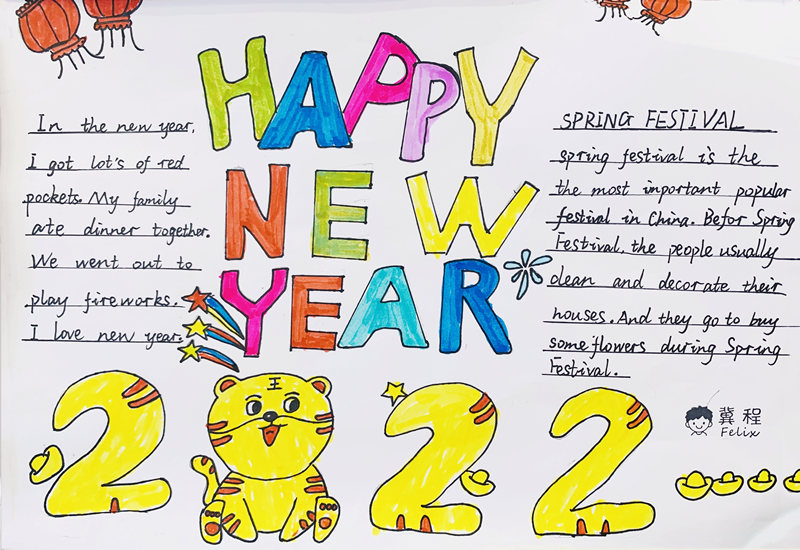 HAPPY
NEW
YEAR
In the new year,
I got lot's of red
pockets. My family
ate dinner together.
We went out to
play fireworks.
I love new year.
SPRING FESTIVAL
spring festival is the
the most important popular
festival in China. Befor Spring
Festival, the people usually
clean and decorate their
houses. And they go to buy
some flowers during Spring
Festival.
王
2 22
冀程
Felix